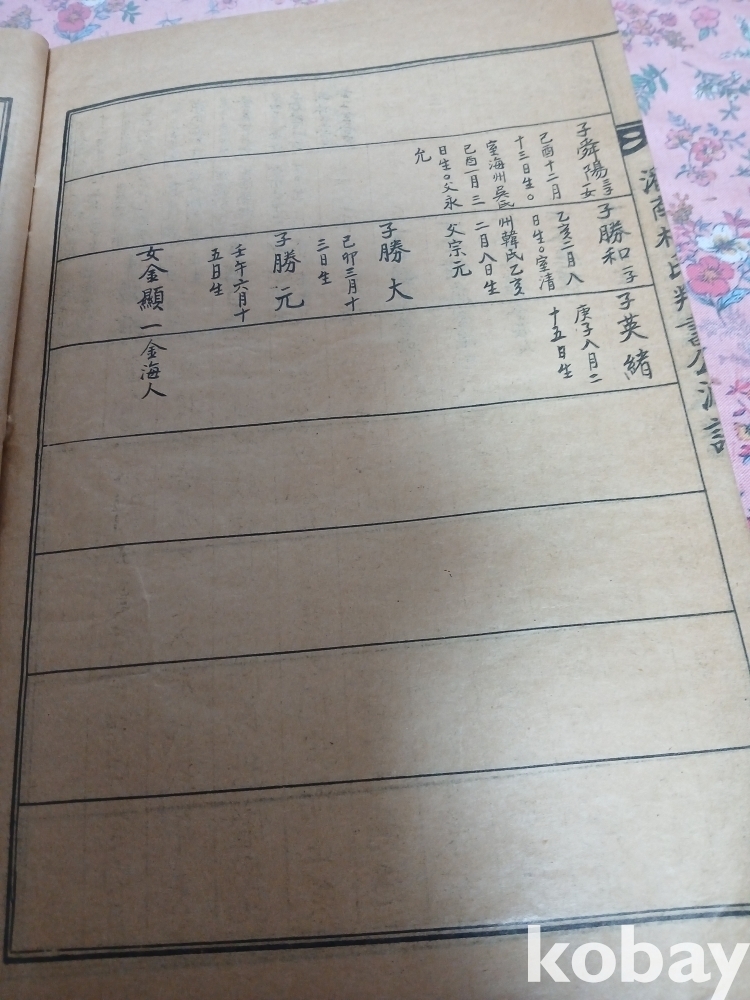 氏判書公派譜
子舜陽 三子一女
己酉十二月
十三日生。
室海州吳氏
己酉一月三
日生。父永
允
子勝和 一子
乙亥二月八
日生。室清
州韓氏乙亥
二月八日生
父宗元
子勝大
己卯三月十
三日生
子勝元
壬午六月十
五日生
女金顯一 金海人
子英緒
庚子八月二
十五日生
kobay